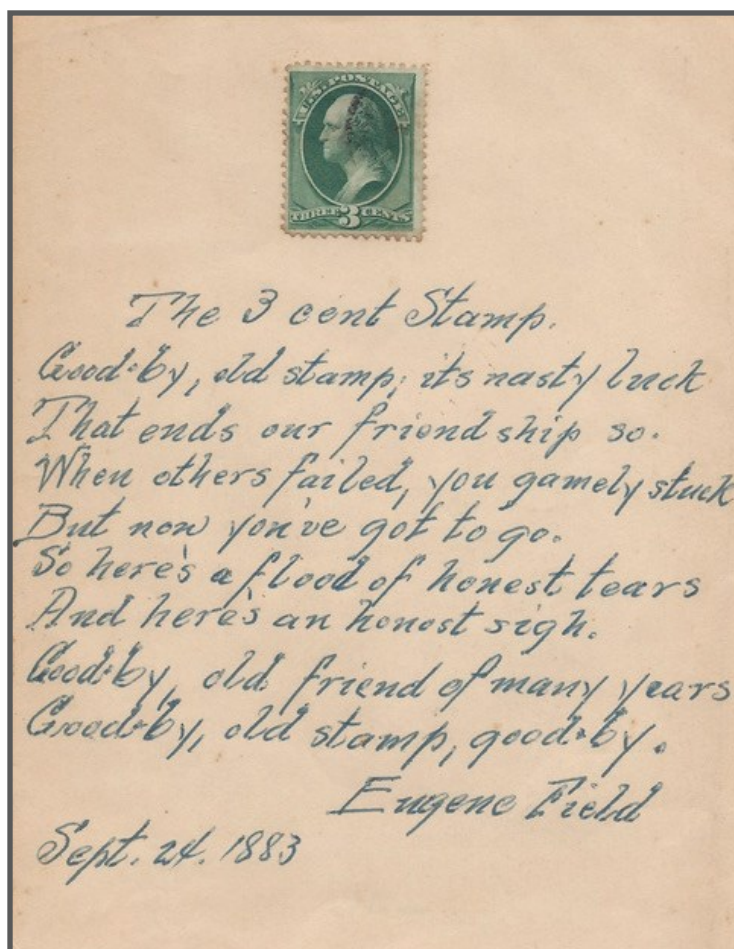 U.S. POSTAGE
THREE 3 CENTS
The 3 cent Stamp.
Good-by, old stamp; its nasty luck
That ends our friendship so.
When others failed, you gamely stuck
But now you've got to go.
So here's a flood of honest tears
And here's an honest sigh.
Good-by, old friend of many years
Good-by, old stamp, good-by.
Eugene Field
Sept. 24. 1883